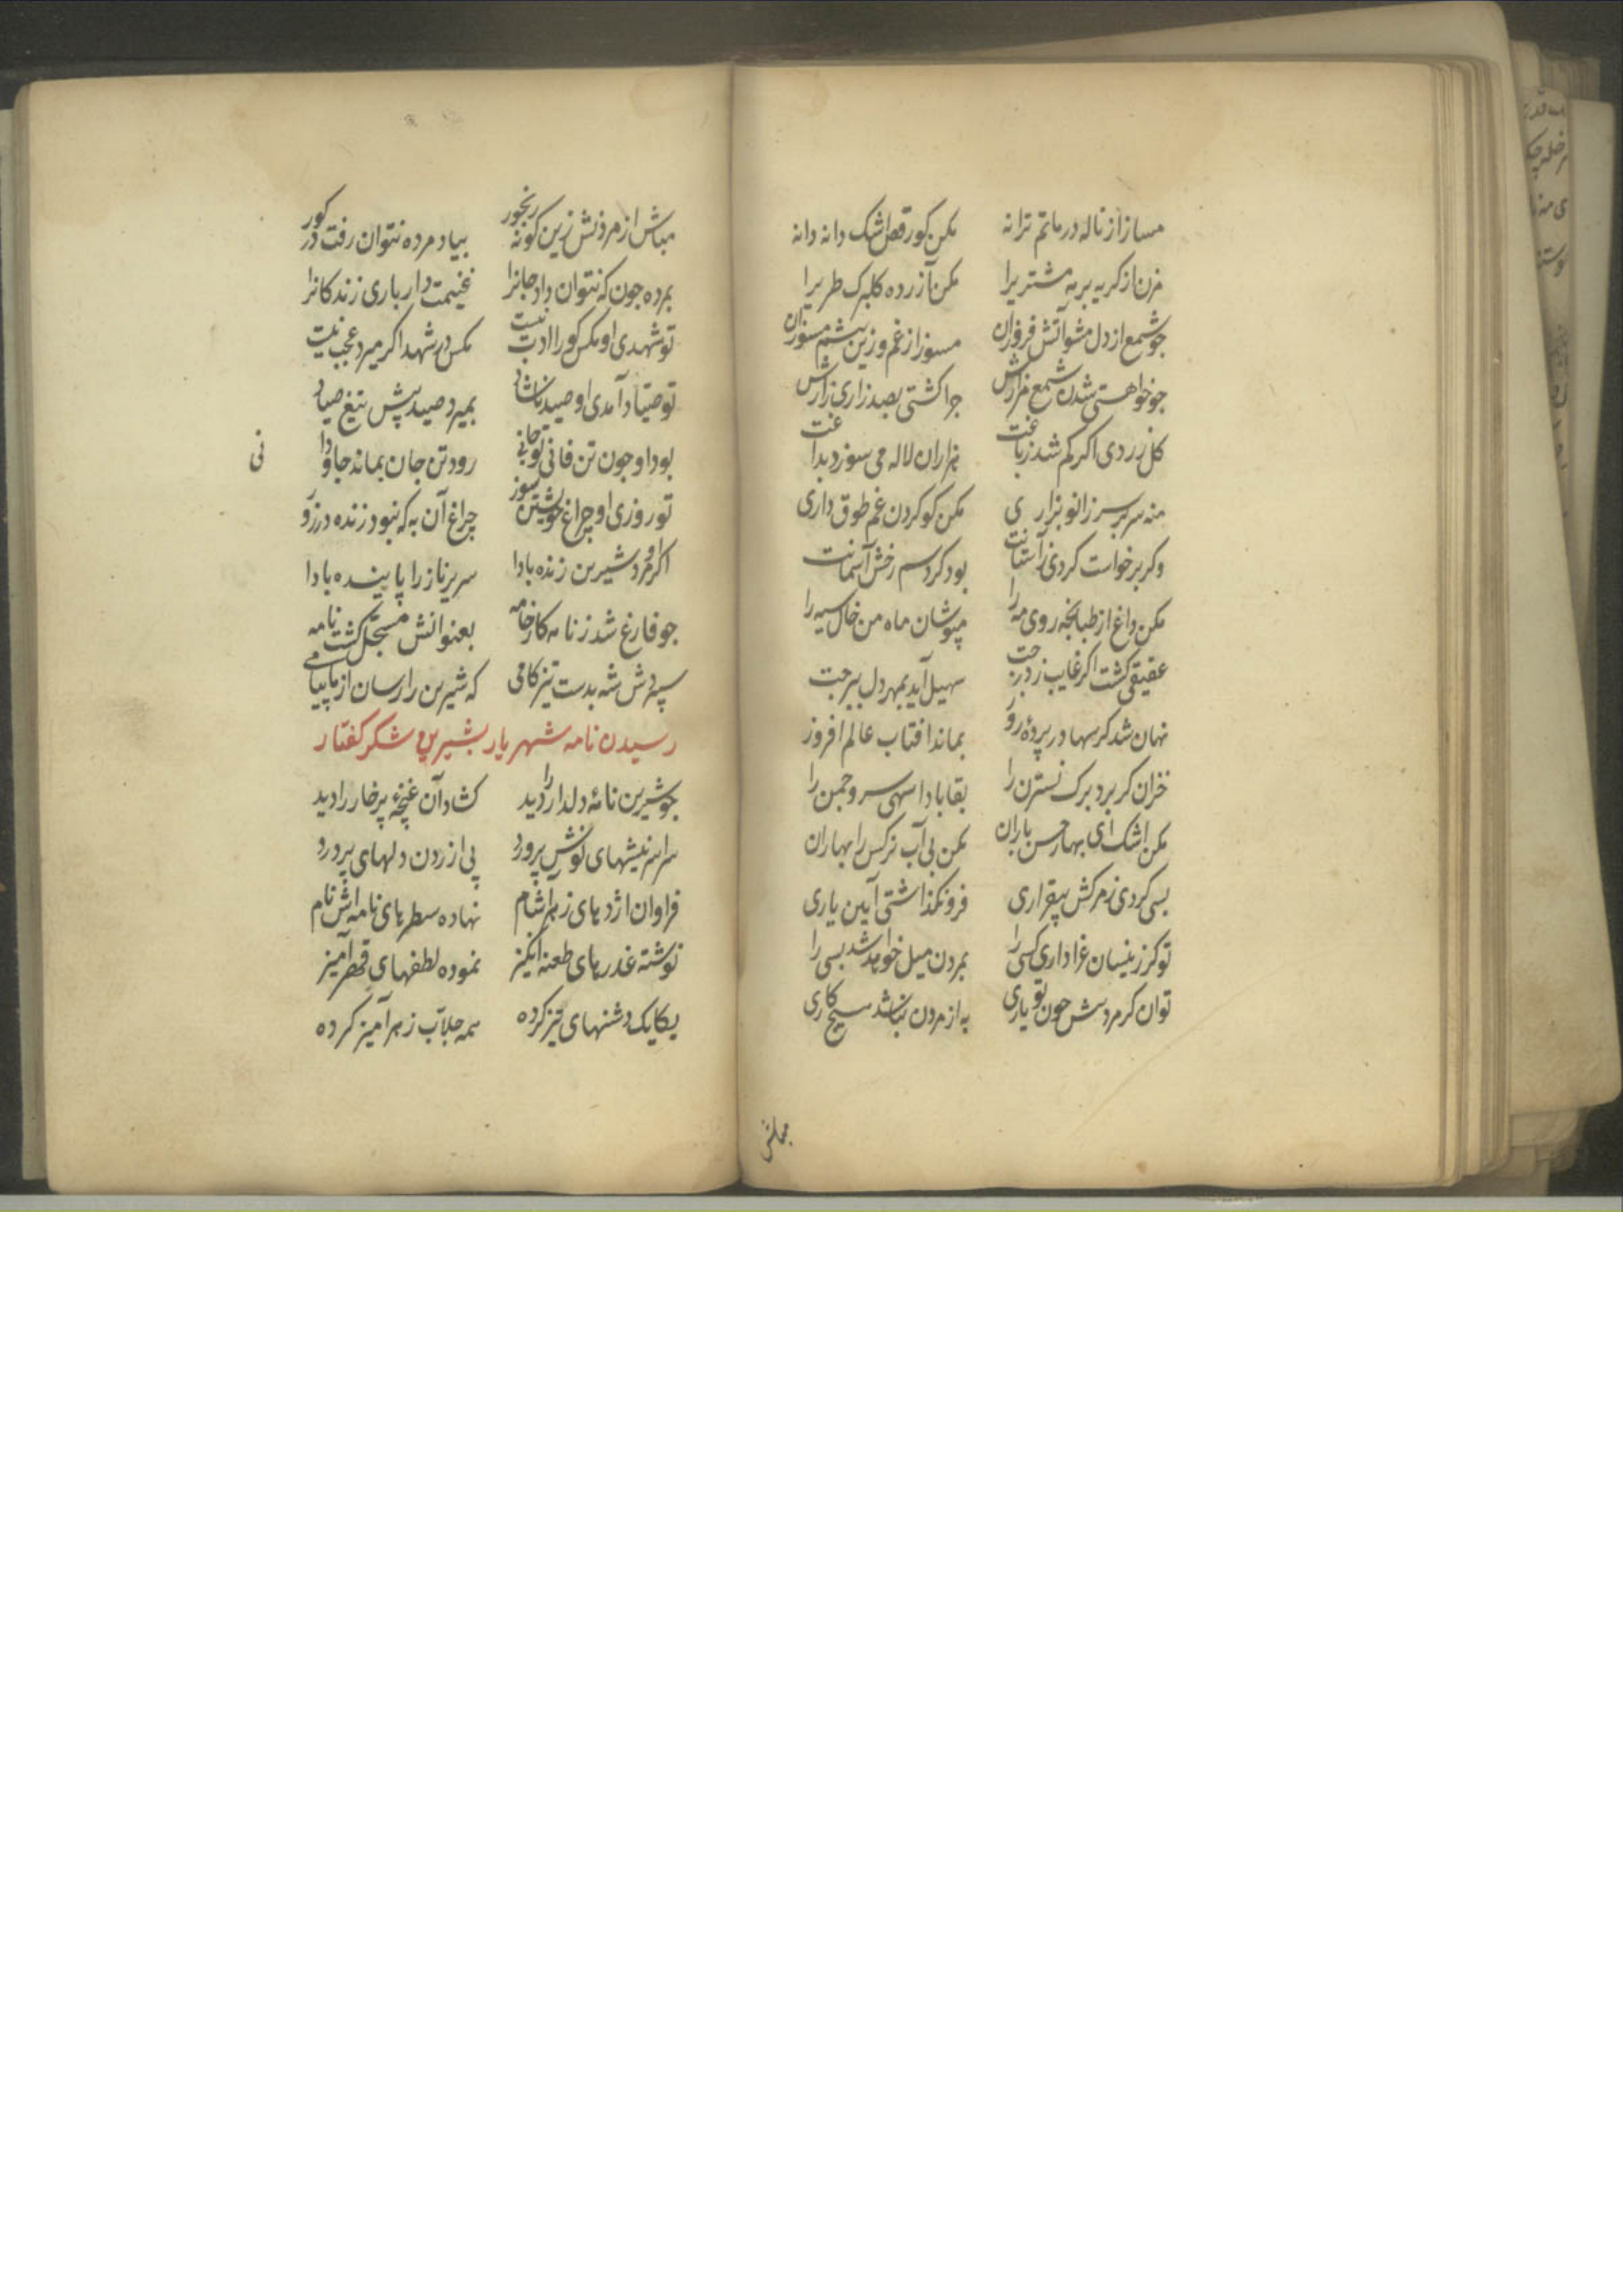 مساز از ناله در ماتم ترانه مکن کور قص اشک دانه دانه
مزن از کریه بر مه مشتریرا مکن آزرده کلبرک طریرا
جو شمع از دل مشو آتش فروزان مسوز از غم وزین بیشم مسوزان
جو خواهستی شدن شمع مزارش جرا کشتی بصد زاری زارش
کل زردی اکر کم شد زباغت هزاران لاله می سوزد بداغت
منه سر بر سر زانو بزاری مکن کو کردن غم طوق داری
وکر برخواست کردی زآستانت بود کرد سم رخش آسمانت
مکن داغ از طبانجه روی مه را مپوشان ماه من خاک سیه را
عقیقی کشت اکر غایب ز درجت سهیل آید بمهر دل ببرجت
نهان شد کر سها در پرده روز بماند افتاب عالم افروز
خزان کر برد برک نسترن را بقا بادا سهی سرو جمن را
مکن اشک ای بهار حسن باران مکن بی آب نرکس را بهاران
بسی کردی ز مرکش بیقراری فرو نکذاشتی آیین یاری
تو کر زینسان عزاداری کسی را بمردن میل خواهد شد بسی را
توان کر مرد پیش جون تو یاری به از مردن نباشد هیچ کاری
مباش
مباش از مردنش زین کونه رنجور بیاد مرده نتوان رفت در کور
بمرده جون که نتوان داد جانرا غنیمت دار باری زندکانرا
تو شهدی او مکس کورا ادب نیست مکس در شهد اکر میرد عجب نیست
تو صیاد آمدی او صید ناشاد بمیرد صید پیش تیغ صیاد
بود او جون تن فانی تو جانی رود تن جان بماند جاودانی
تو روزی او چراغ خویشتن سوز چراغ آن به که نبود زنده در روز
اکر او مرد شیرین زنده بادا سریر ناز را پاینده بادا
جو فارغ شد ز نامه کار خامه بعنوانش مسجل کشت نامه
سپردش شه بدست تیز کامی که شیرین را رسان از ما پیامی
رسیدن نامه شهریار بشیرین شکر کفتار
جو شیرین نامهٔ دلدار را دید کشاد آن غنچهٔ پر خار را دید
سراسر نیشهای نوش پرورد پی ازردن دلهای پر درد
فراوان اژدهای زهر اشام نهاده سطرهای نامه اش نام
نوشته عذرهای طعنه انکیز نموده لطفهای قهر آمیز
یکایک دشنهای تیز کرده همه جلاب زهر آمیز کرده